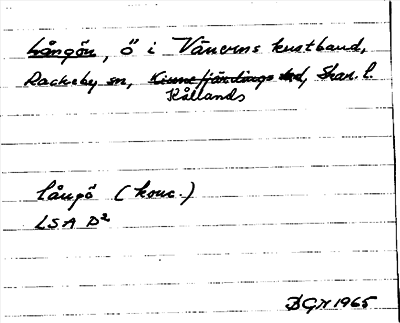 Långön, ö i Vänerns kustband,
Rackeby sn, Kinnefjärdings hd, Skar. l.
Kållands
långö (konc.)
LSA D2
BGN 1965